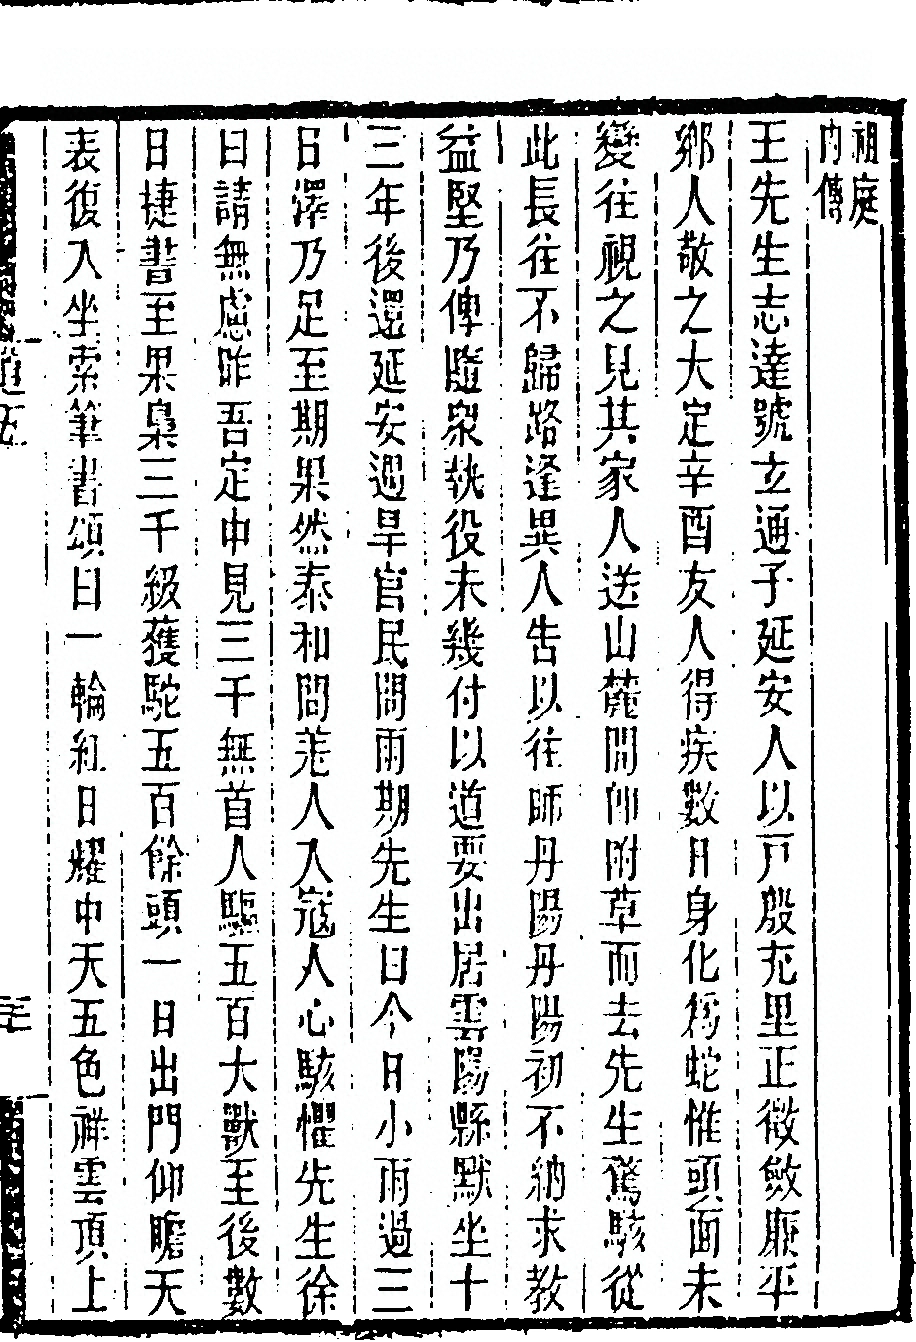 祖庭
內傳
王先生志達號玄通子延安人以戸殷充里正徵斂廉平
鄉人敬之大定辛酉友人得疾數日身化爲蛇惟頭面未
變往視之見其家人送山麓間仰附草而去先生驚駭從
此長往不歸路逢異人告以往師丹陽丹陽初不納求教
益堅乃俾隨衆執役未幾付以道要出居雲陽縣默坐十
三年後還延安過旱官民問雨期先生曰今日小雨過三
日澤乃足至期果然泰和間羌人入寇人心駭懼先生徐
曰請無慮昨吾定中見三千無首人驅五百大獸至後數
日捷書至果梟三千級獲駝五百餘頭一日出門仰瞻天
表復入坐索筆書頌曰一輪紅日耀中天五色祥雲頂上
道五
三